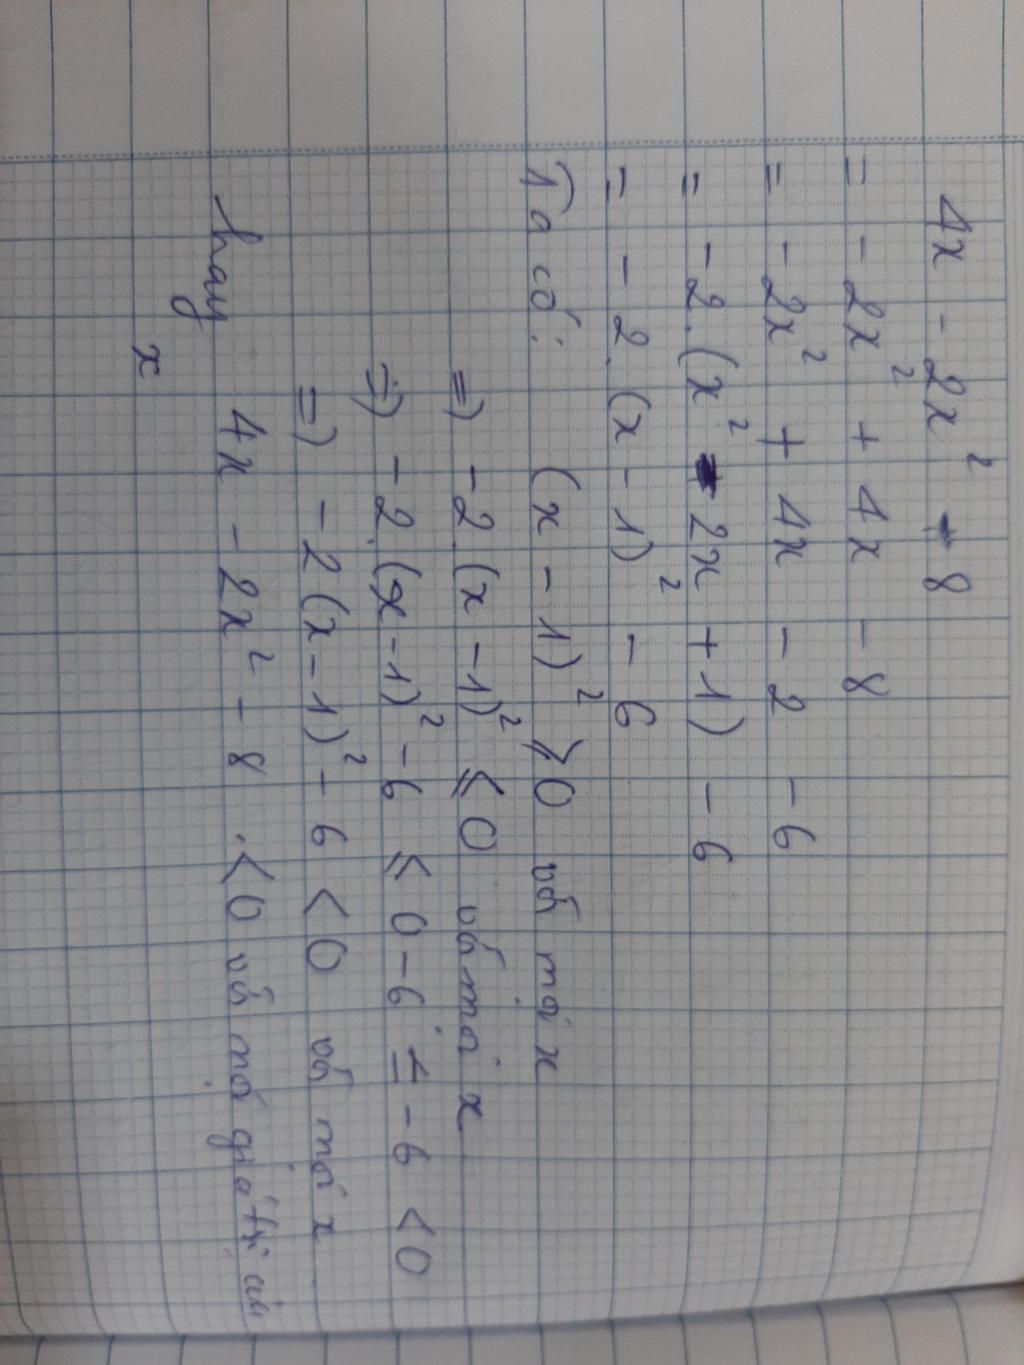 4x - 2x² - 8
= - 2x² + 4x - 8
= - 2x² + 4x - 2 - 6
= - 2.(x² - 2x + 1) - 6
= - 2.(x - 1)² - 6
Ta có: (x - 1)² ⩾ 0 với mọi x
=) - 2.(x - 1)² ⩽ 0 với mọi x
=) - 2.(x - 1)² - 6 ⩽ 0 - 6 = - 6 < 0
=) - 2(x - 1)² - 6 < 0 với mọi x
hay 4x - 2x² - 8 < 0 với mọi giá trị của
x